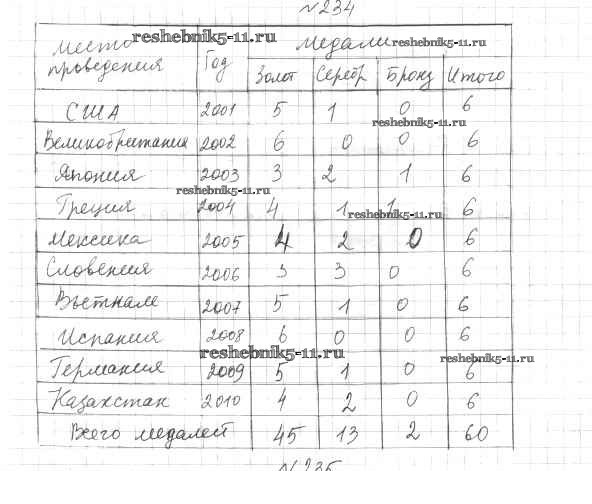 №234
Место проведения Год Медали
Золот Серебр Бронз Итого
США 2001 5 1 0 6
Великобритания 2002 6 0 0 6
Япония 2003 3 2 1 6
Греция 2004 4 1 1 6
Мексика 2005 4 2 0 6
Словения 2006 3 3 0 6
Вьетнам 2007 5 1 0 6
Испания 2008 6 0 0 6
Германия 2009 5 1 0 6
Казахстан 2010 4 2 0 6
Всего медалей 45 13 2 60
№235
reshebnik5-11.ru
reshebnik5-11.ru
reshebnik5-11.ru
reshebnik5-11.ru
reshebnik5-11.ru
reshebnik5-11.ru
reshebnik5-11.ru